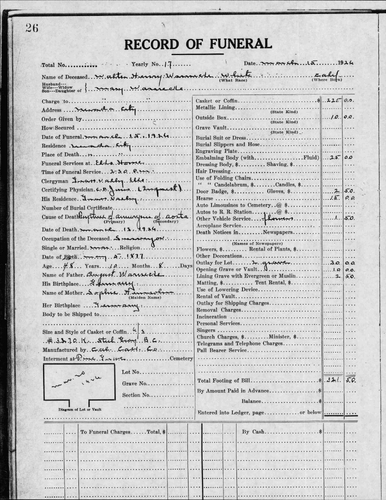 26
RECORD OF FUNERAL
Total No. Yearly No. 17 Date March 15 1926
Name of Deceased Walter Henry White Calif
(What Race) (Where Born)
Husband Wife—Widow Son—Daughter of Mary
Charge to
Address Nevada City
Order Given by
How Secured
Date of Funeral March 15, 1926
Residence Nevada City
Place of Death
Funeral Services at Elks Home
Time of Service 2:30 P.M.
Clergyman Elks
Certifying Physician
His Residence Grass Valley
Number of Burial Certificate
Cause of Death Rupture of aneurysm of aorta
Date of Death March 13, 1926
Occupation of the Deceased
Single or Married Religion
Date of Birth May 5, 1877
Age 48 Years 10 Months 8 Days
Name of Father August
His Birthplace Germany
Name of Mother Sophie
(Maiden Name)
Her Birthplace Germany
Body to be Shipped to
Size and Style of Casket or Coffin 6/3
Manufactured by Cal. Cask. Co
Interment at Pine Cemetery
Lot No.
Grave No.
Section No.
Diagram of Lot or Vault
Casket or Coffin $ 225 00
Metallic Lining
(State Kind)
Outside Box 10 00
(State Kind)
Grave Vault
(State Kind)
Burial Suit or Dress
Burial Slippers and Hose
Engraving Plate
Embalming Body (with Fluid) 25 00
Dressing Body, $ Shaving, $
Hair Dressing
Use of Folding Chairs
" " Candelabrum, $ Candles, $
Door Badge, $ Gloves, $ 2 50
Hearse 15 00
Auto Limousines to Cemetery @ $
Autos to R. R. Station @ $
Other Vehicle Service flowers 1 50
Aeroplane Service
Death Notices in Newspapers
(Names of Newspapers)
Flowers, $ Rental of Plants, $
Other Decorations
Outlay for Lot 2 grave 30 00
Opening Grave or Vault 10 00
Lining Grave with Evergreen or Muslin 2 50
Matting, $ Tent Rental, $
Use of Lowering Device
Rental of Vault
Outlay for Shipping Charges
Removal Charges
Incineration
Personal Services
Singers
Church Charges, $ Minister, $
Telegrams and Telephone Charges
Pall Bearer Service
Total Footing of Bill $ 321 50
By Amount Paid in Advance $
Balance $
Entered into Ledger, page or below
To Funeral Charges $ By Cash $